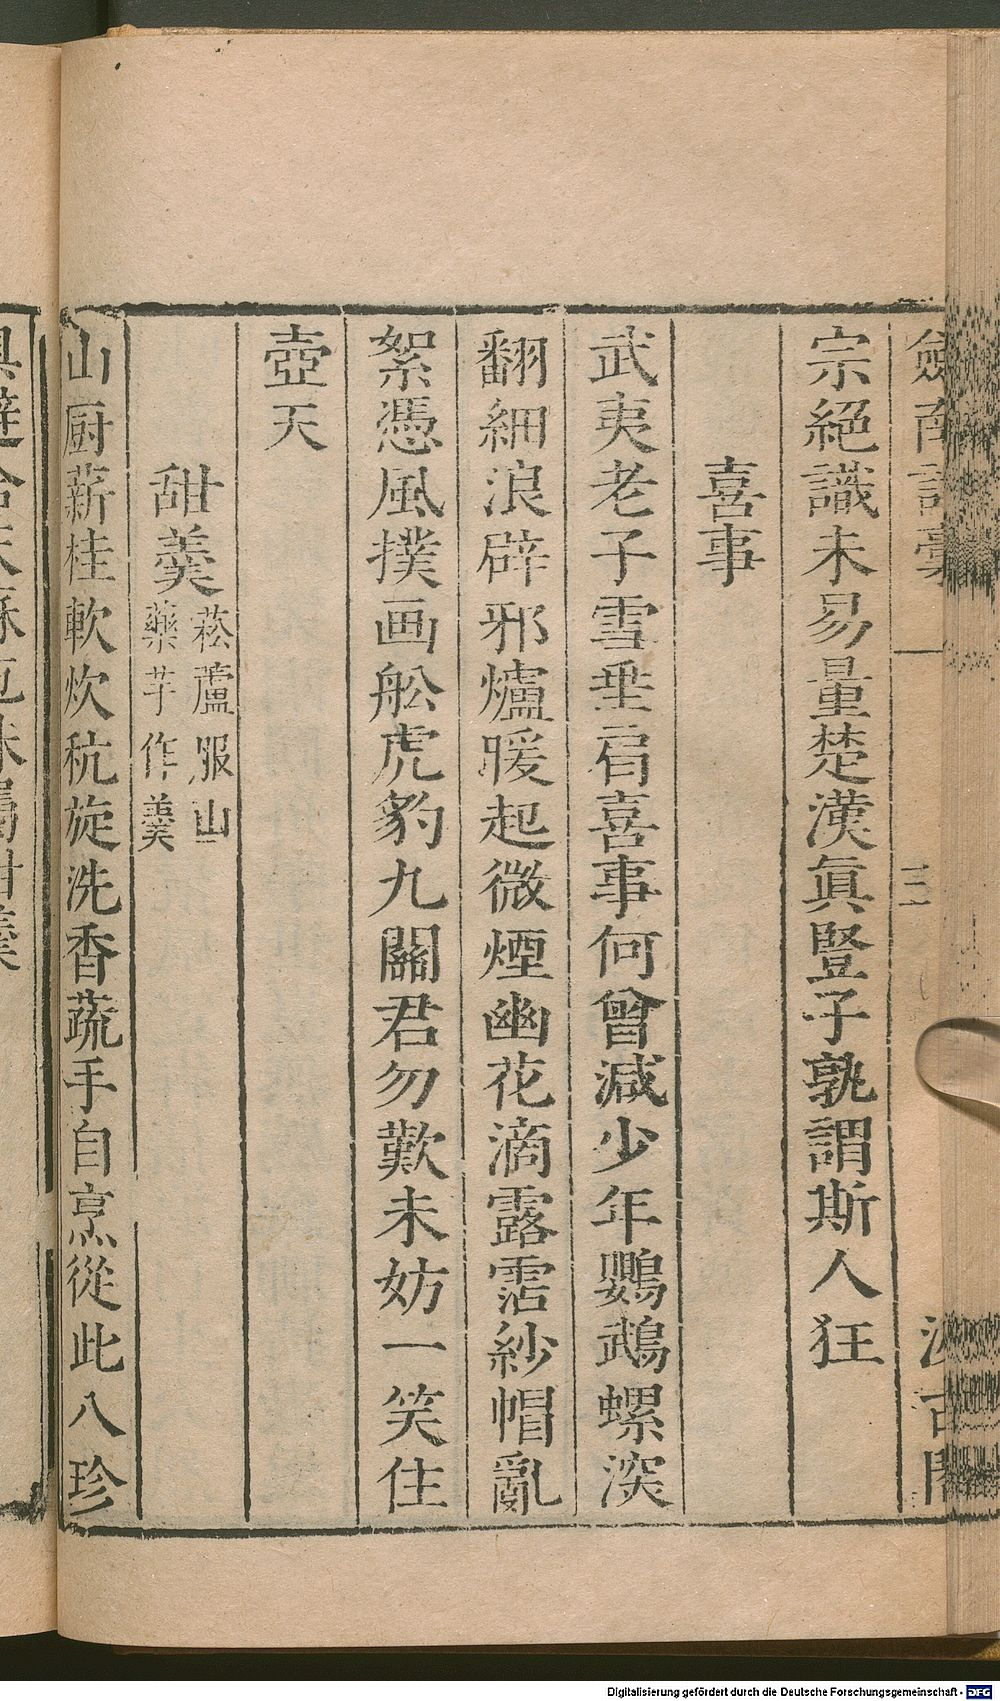 劍南詩稾 三 汲古閣
宗絕識未易量楚漢眞豎子孰謂斯人狂
喜事
武夷老子雪垂肩喜事何曾減少年鸚鵡螺深
翻細浪辟邪爐暖起微煙幽花滴露霑紗帽亂
絮憑風撲画舩虎豹九關君勿歎未妨一笑住
壺天
甜羹 菘蘆服山
藥芋作羹
山厨薪桂軟炊秔旋洗香蔬手自烹從此八珍
Digitalisierung gefördert durch die Deutsche Forschungsgemeinschaft - DFG